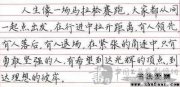 人生像一场马拉松赛跑,大家都从同
一起点出发,在行进中拉开距离。有人领先,
有人落后,有人退场,在紧张的角逐中,只有
勇敢坚强的人,才有希望到达光辉的顶点,到
达理想的彼岸。